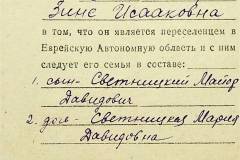 Зине Исааковна
в том, что он является переселенцем в
Еврейскую Автономную область и с ним
следует его семья в составе:
1. сын- Светницкий Майор
Давидович
2. дочь- Светницкая Мария
Давидовна